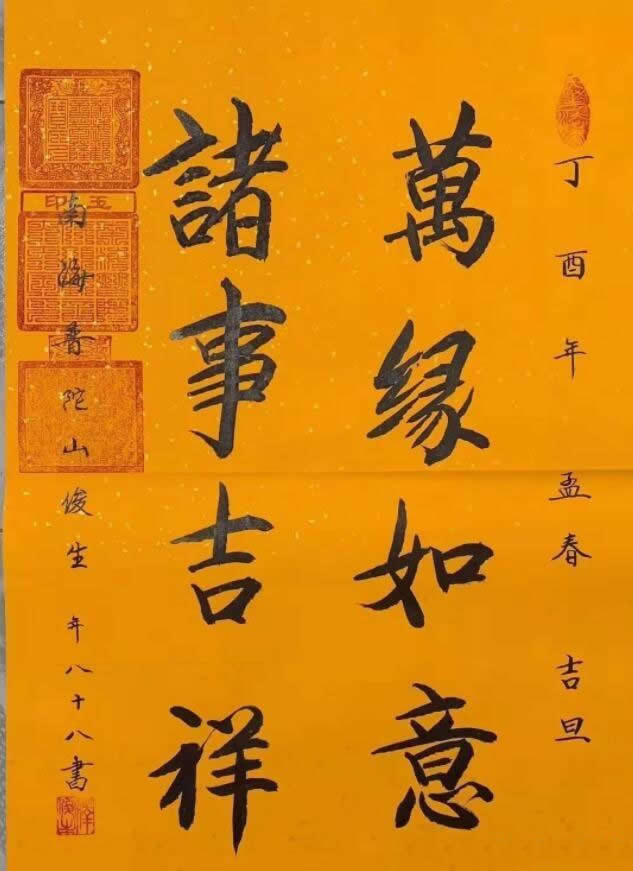 丁酉年孟春吉旦
萬缘如意
諸事吉祥
南海普陀山俊生年八十八書
玉印